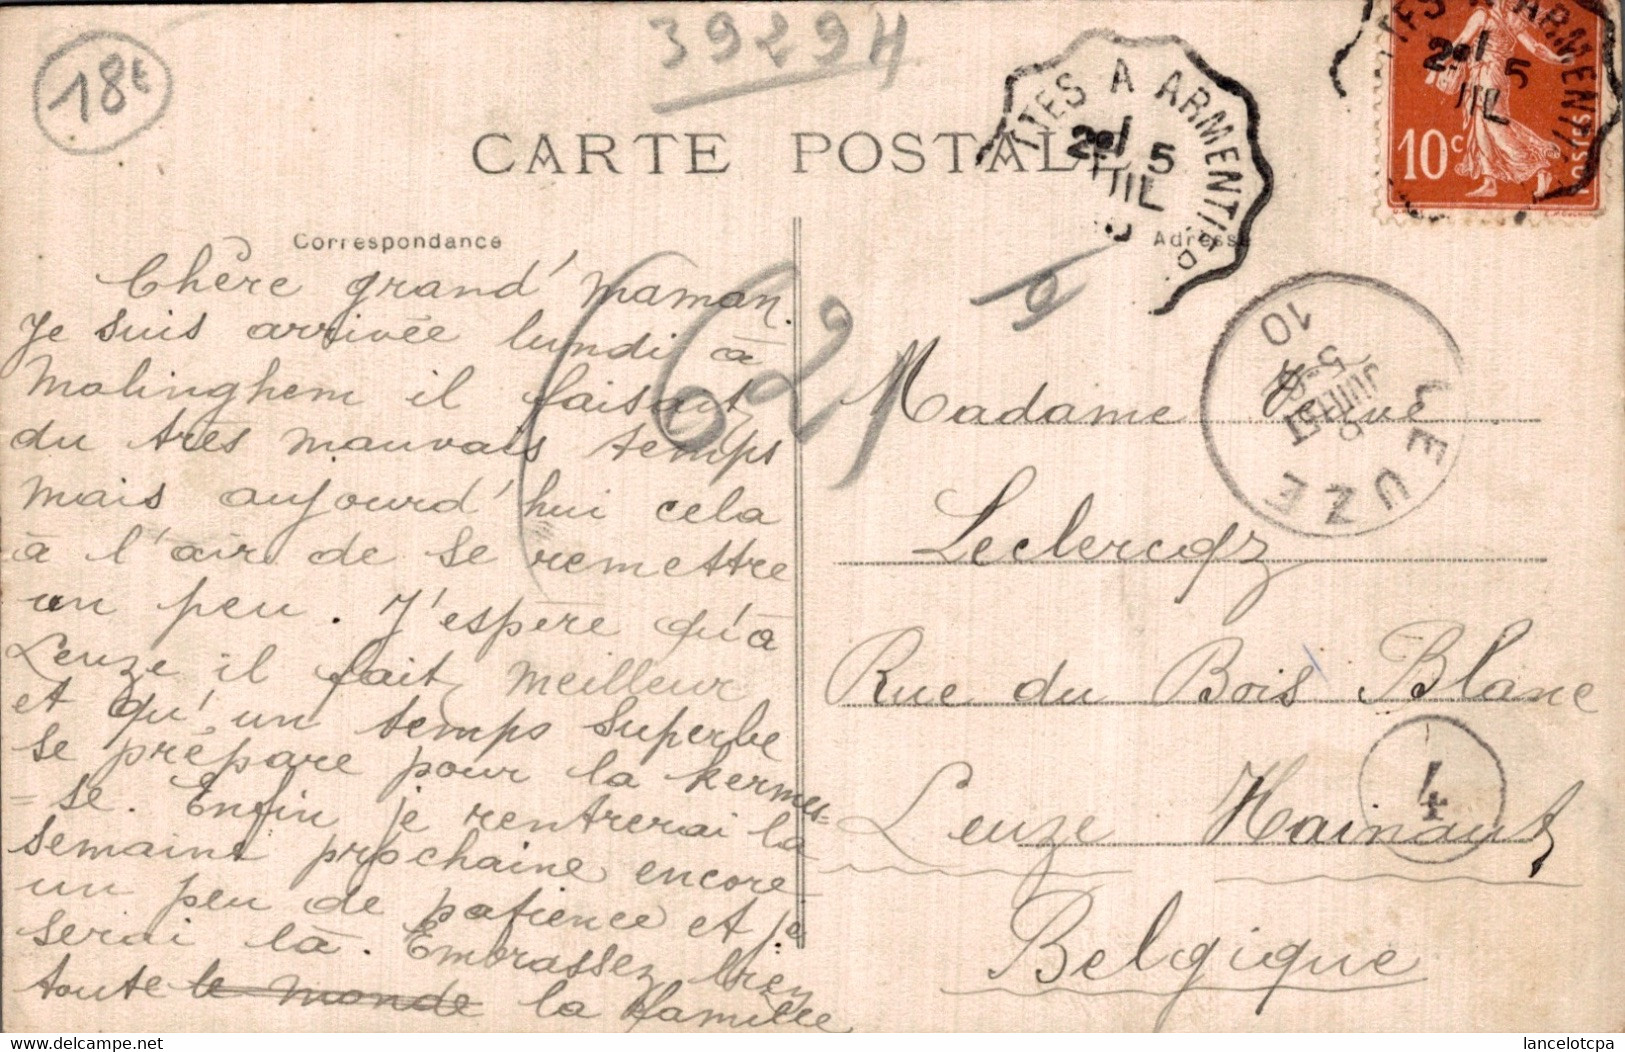 18€
39294
CARTE POSTALE
ITES A ARMENTI
2e/ 5
10c
POSTES
Correspondance
Adresse
Chère grand'maman.
Je suis arrivée lundi à
Molinghem il faisait
du très mauvais temps
mais aujourd'hui cela
à l'air de se remettre
un peu. J'espère qu'à
Leuze il fait meilleur
et qu'un temps superbe
se prépare pour la kermes-
-se. Enfin je rentrerai la
semaine prochaine encore
un peu de patience et je
serai là. Embrassez bien
toute le monde la famille
62
LEUZE
10
5
JUILLET
Madame Veuve
Leclercqz
Rue du Bois Blanc
Leuze Hainaut
4
Belgique
delcampe.net
lancelotcpa